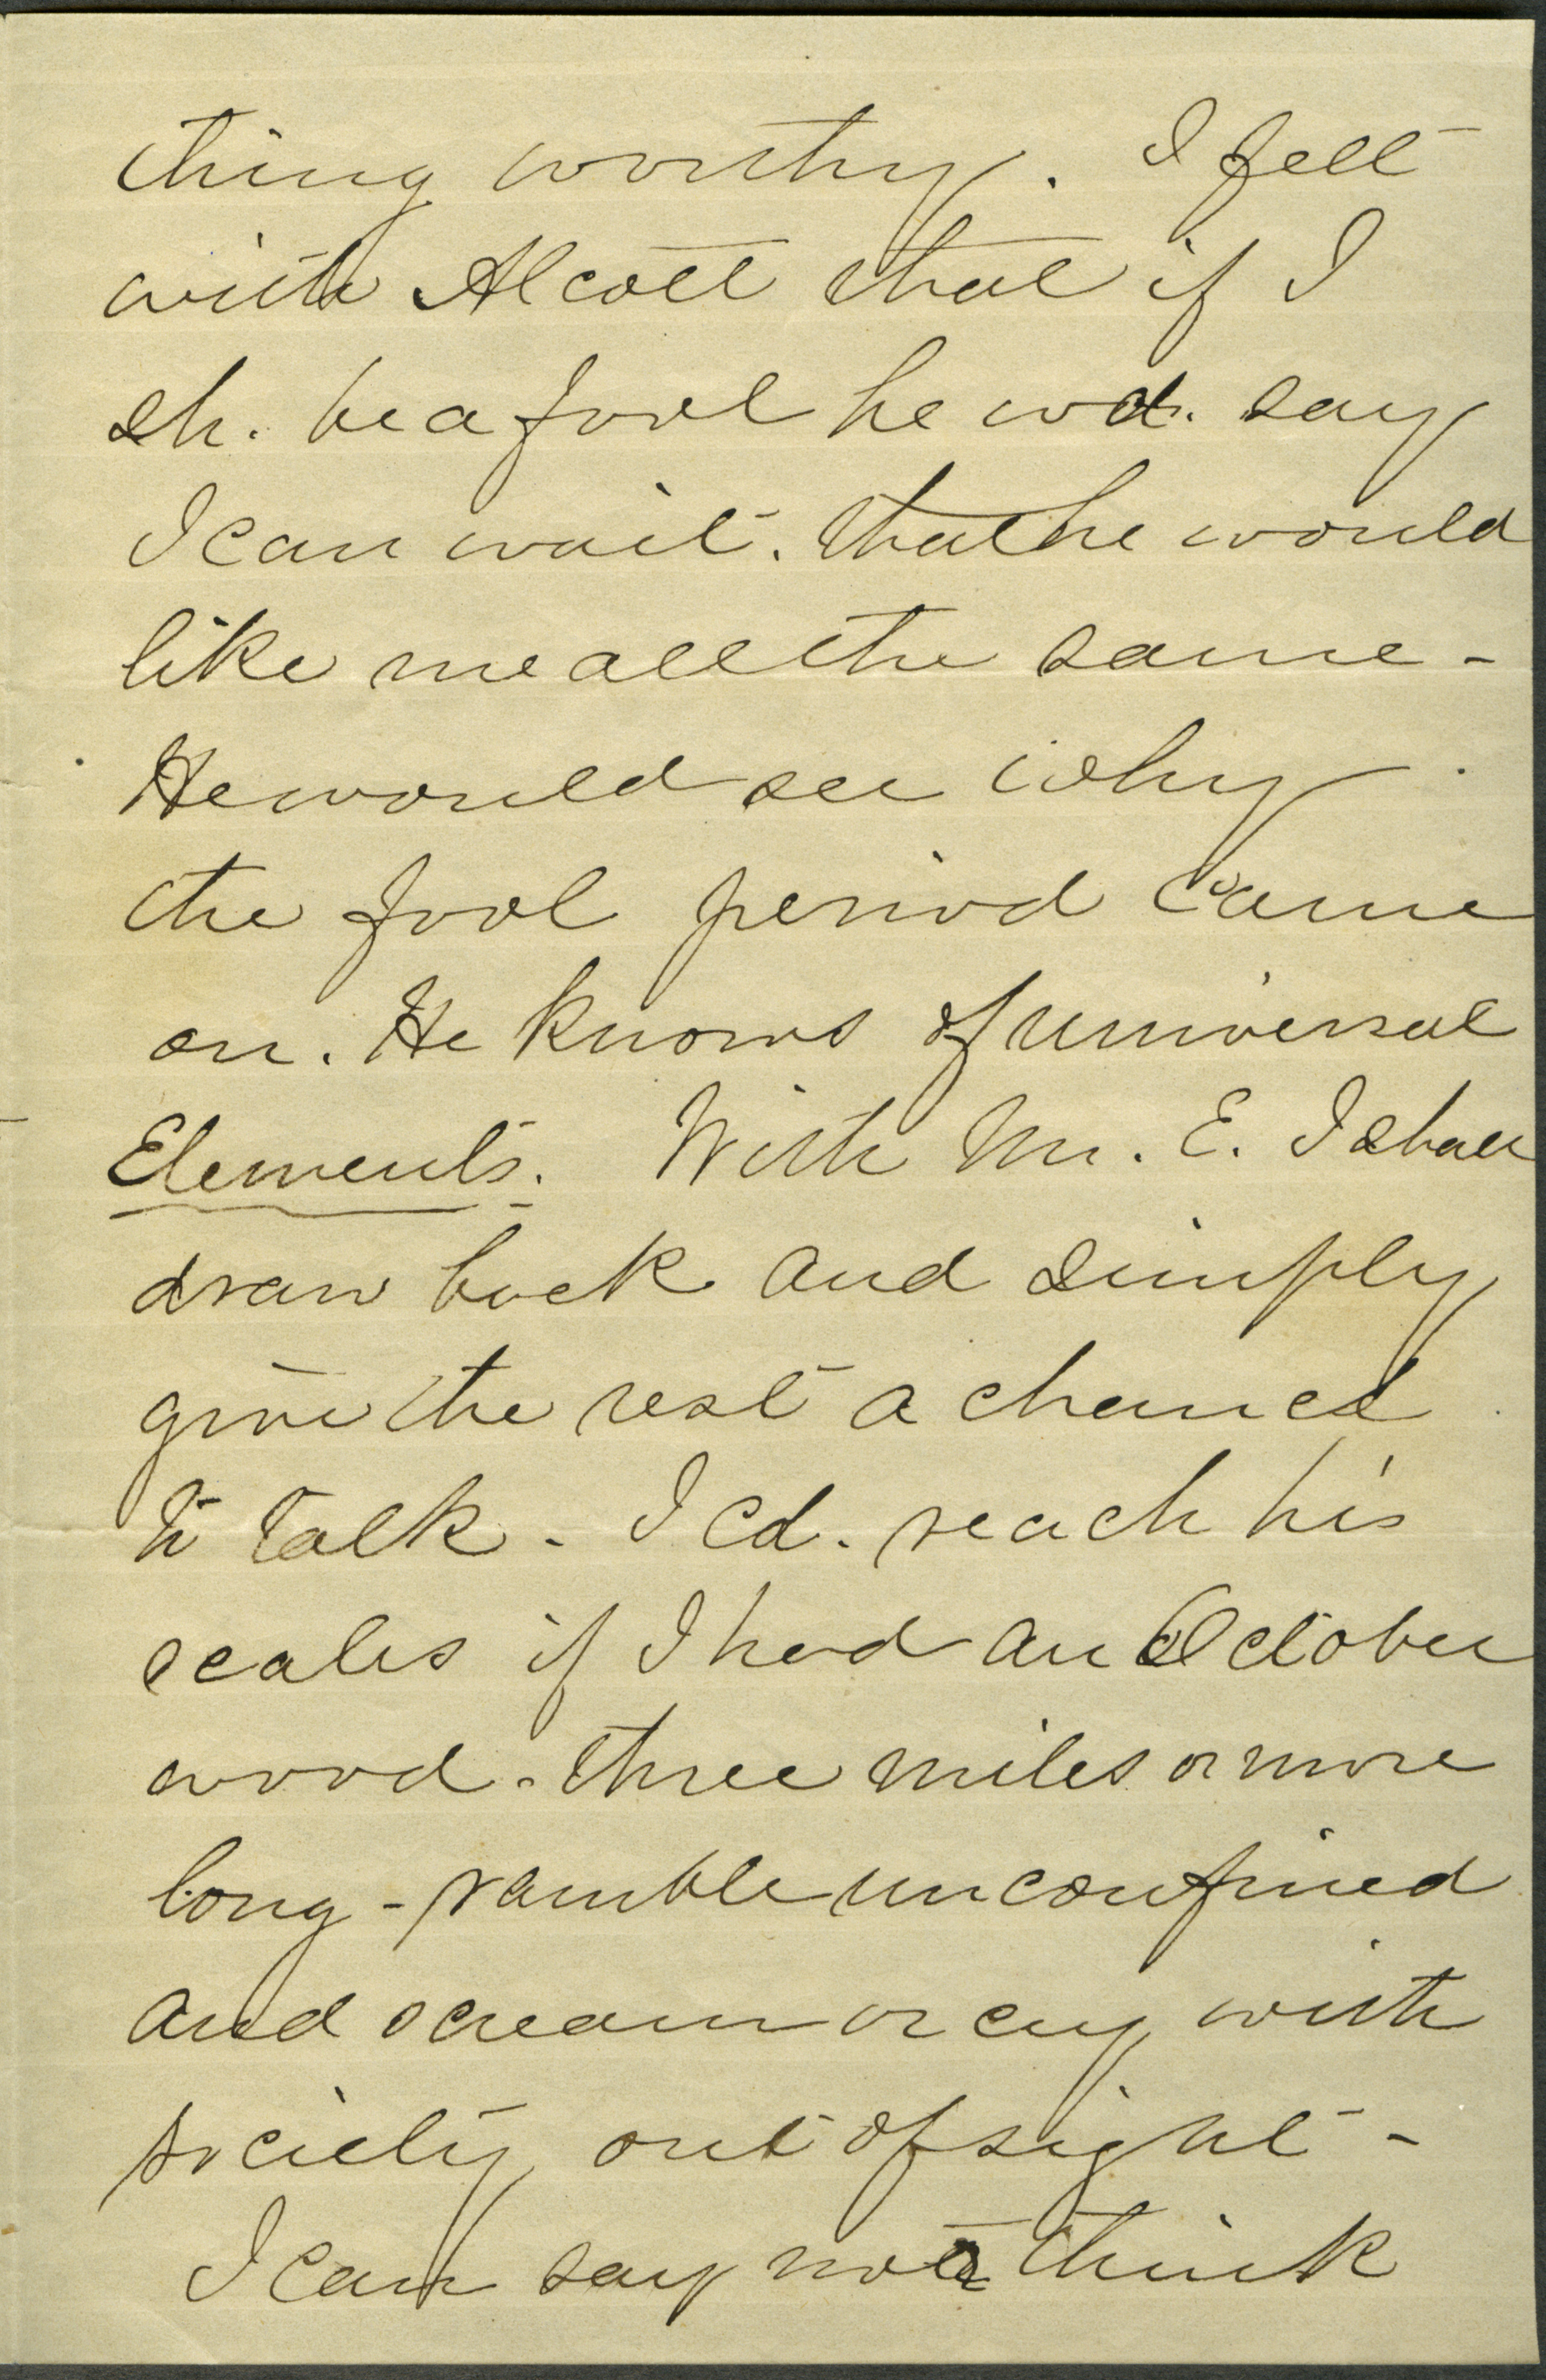 thing worthy. I felt
with Alcott that if I
sh. be a fool he wd. say
I can wait. that he would
like me all the same -
He would see why
the fool period came
on. He knows of universal
Elements. With Mr. E. I shall
draw back and simply
give the rest a chance
to talk - I cd. reach his
scales if I had an October
wood - three miles or more
long - ramble unconfined
and scream or cry with
society out of sight -
I can say not think